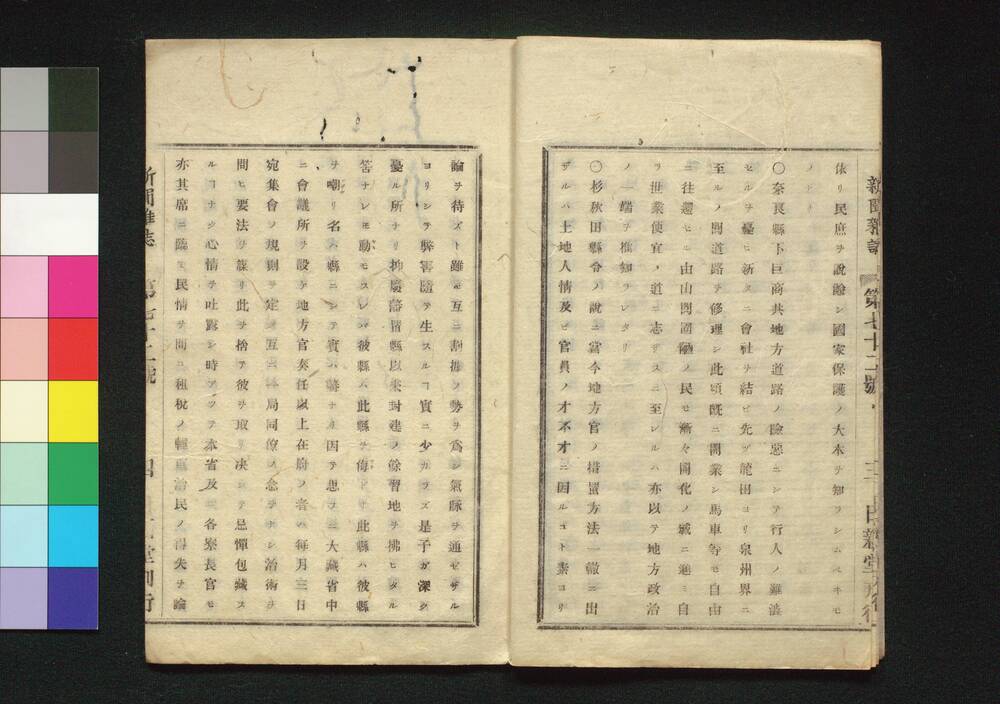 新聞雜誌 第七十二號 三 日新堂刊行
依リ民庶ヲ說諭シ國家保護ノ大本ヲ知ラシムベキモ
ノトド
〇奈良縣下巨商共地方道路ノ險惡ニシテ行人ノ難澁
セルヲ憂ヒ新タニ會社ヲ結ビ先ヅ龍田ヨリ泉州界ニ
至ルノ間道路ヲ修理シ此頃既ニ開業シ馬車等モ自由
ニ往還セル由山間邊陬ノ民モ漸々開化ノ域ニ進ミ自
リ世業便宜ノ道ニ志ザスニ至レルハ亦以テ地方政治
ノ一端ヲ推知ラレタリ
〇杉秋田縣令ノ說ニ當今地方官ノ措置方法一轍ニ出
ザルハ土地人情及ビ官員ノ才不才ニ因ルコト素ヨリ
論ヲ待ズト雖モ互ニ割據ノ勢ヲ爲シ氣脉ヲ通ゼザル
ヨリシテ弊害隨テ生スルヿ實ニ少カラズ是予ガ深ク
憂ル所ナリ抑廢藩置縣以來封建ノ餘習地ヲ拂ヒタル
筈ナレモ動モスレバ彼縣ハ此縣ヲ侮ドリ此縣ハ彼縣
ヲ嘲リ名ハ縣ニシテ實ハ藩ナリ因テ思フニ大藏省中
ニ會議所ヲ設ケ地方官奏任以上在府ノ者ハ每月三日
宛集會ノ規則ヲ定メ互ニ本局同僚ノ念ヲナシ治術ヲ
問ヒ要法ヲ謀リ此ヲ捨テ彼ヲ取リ決シテ忌憚包藏ス
ルコナク心情ヲ吐露シ時アツテ本省及ビ各寮長官モ
亦其席ニ臨ミ民情ヲ問ヒ租稅ノ輕重治民ノ得失ヲ論
新聞雜誌 第七十二號 四 日新堂刊行